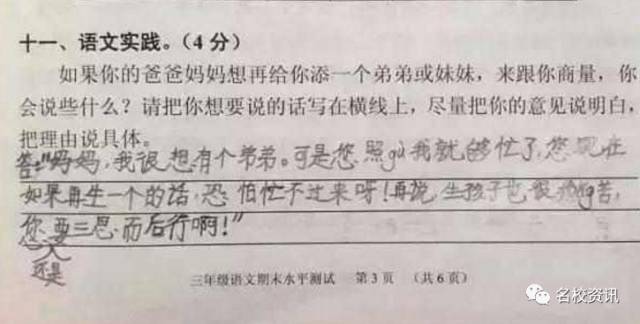 十一、语文实践。（4 分）
如果你的爸爸妈妈想再给你添一个弟弟或妹妹，来跟你商量，你
会说些什么？请把你想要说的话写在横线上，尽量把你的意见说明白，
把理由说具体。
答："妈妈，我很想有个弟弟。可是您照gù我就够忙了，您现在
如果再生一个的话，恐怕忙不过来呀！再说，生孩子也很苦，
您要三思而后行啊！"
还是
三年级语文期末水平测试 第 3 页 （共 6 页）
名校资讯